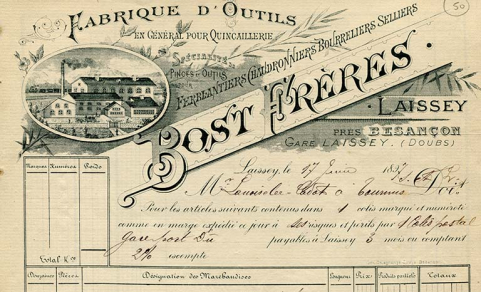 50
FABRIQUE D'OUTILS
EN GÉNÉRAL POUR QUINCAILLERIE
SPÉCIALITÉ
PINCES ET OUTILS
FERBLANTIERS CHAUDRONNIERS BOURRELIERS SELLIERS
BOST FRÈRES.
LAISSEY
PRÈS BESANÇON
GARE LAISSEY. (DOUBS)
Marques Numéros Poids
Laissey, le 17 Juin 189
M à Tournus Doit
Pour les articles suivants contenus dans 1 colis marqué et numéroté
comme en marge expédié ce jour à ses risques et périls par 1 Colis postal
Gare port Dû payables à Laissey 3 mois ou comptant
2% escompte
Total K.
Douzaines Pièces Désignation des Marchandises Coupons Prix Totaux